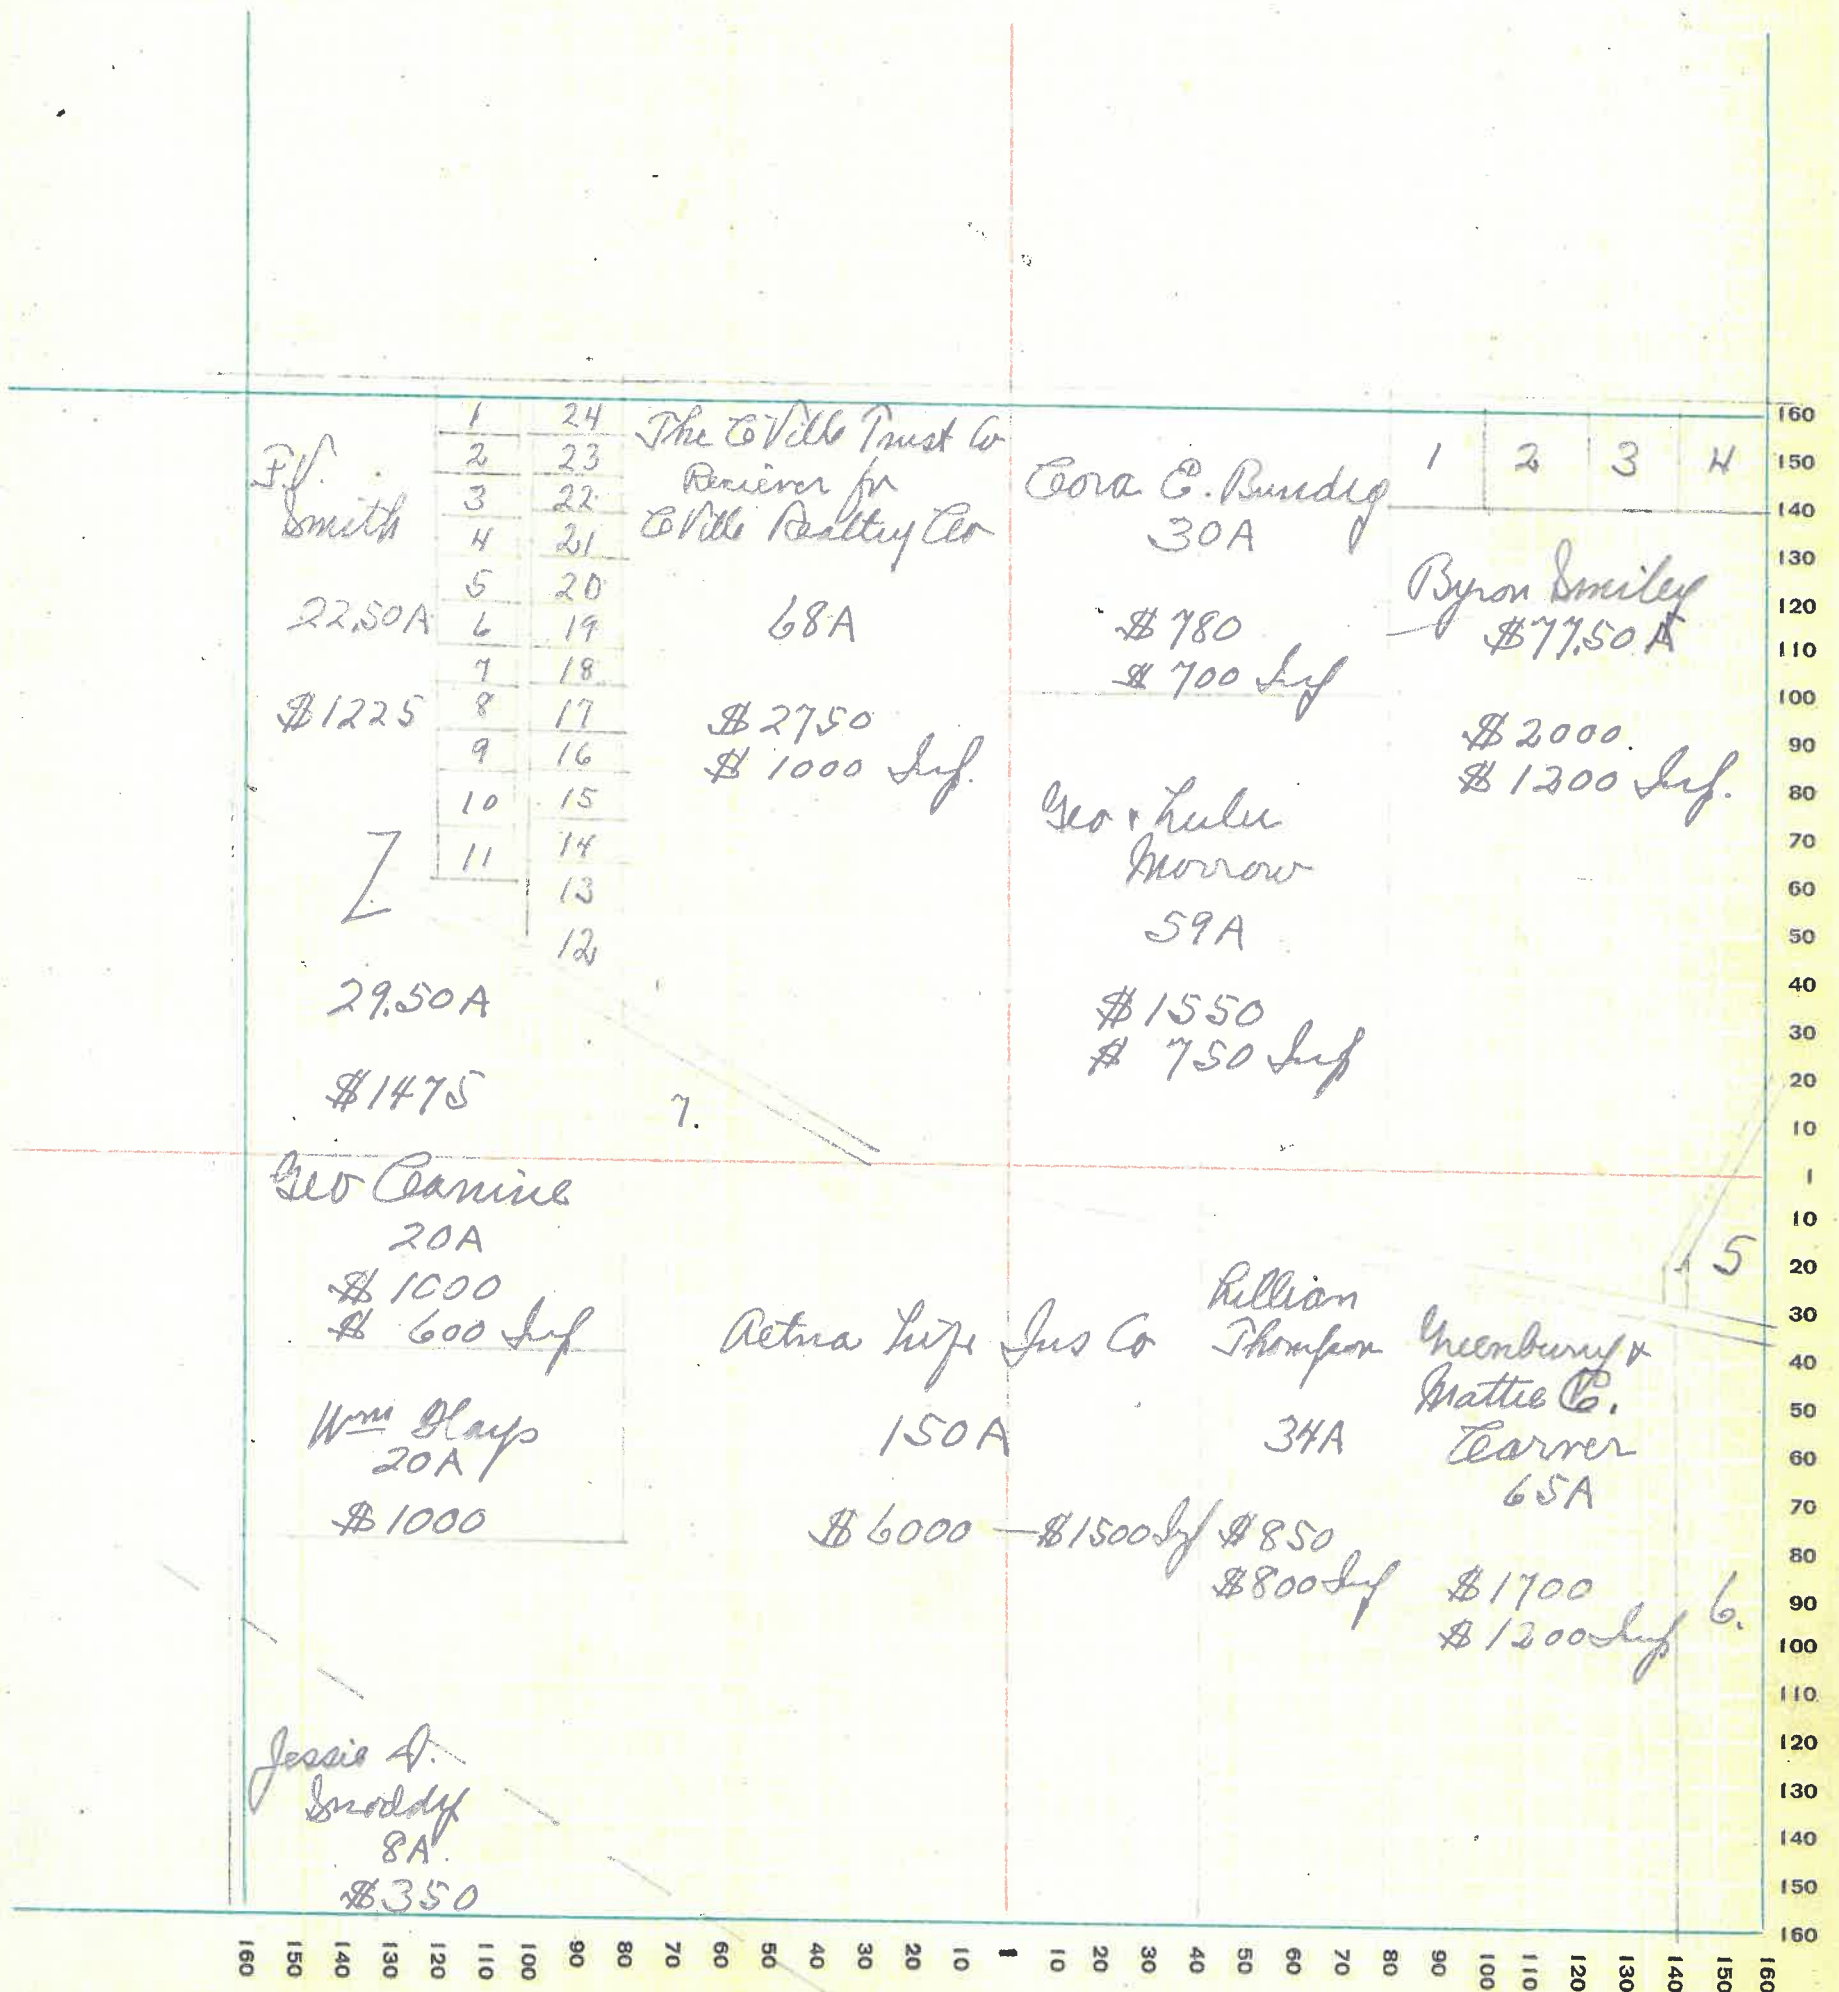 1 24
2 23
3 22
4 21
5 20
6 19
7 18
8 17
9 16
10 15
11 14
13
12
Smith
22.50A
$1225
29.50A
$1475
The C'Ville Trust Co
Reciever for
C'Ville Realtry Co
68A
$2750
$1000 Imp.
7.
Cora E. Bundy
30A
$780
$700 Imp
Geo & Lulu
Morrow
59A
$1550
$750 Imp
1 2 3 4
Byron Smiley
$77.50 A
$2000.
$1200 Imp.
Geo Canine
20A
$1000
$600 Imp
Wm Hays
20A
$1000
Aetna Life Ins Co
150A
$6000 — $1500 Imp
Lillian
Thompson
34A
$850
$800 Imp
Greenbury &
Mattie C.
Carver
65A
$1700
$1200 Imp
5
6.
Jessie D.
Snoddy
8A.
$350
160
150
140
130
120
110
100
90
80
70
60
50
40
30
20
10
1
10
20
30
40
50
60
70
80
90
100
110
120
130
140
150
160
160 150 140 130 120 110 100 90 80 70 60 50 40 30 20 10 1 10 20 30 40 50 60 70 80 90 100 110 120 130 140 150 160